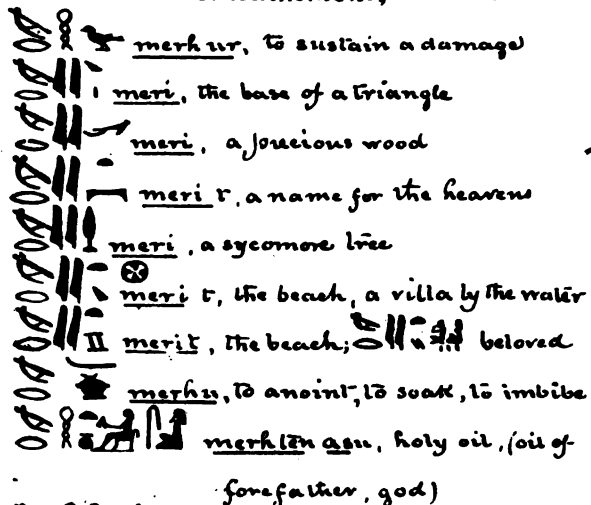 merhur, to sustain a damage
meri, the base of a triangle
meri, a precious wood
meri t, a name for the heavens
meri, a sycomore tree
meri t, the beach, a villa by the water
merit, the beach; beloved
merhu, to anoint, to soak, to imbibe
holy oil, (oil of
forefather, god)